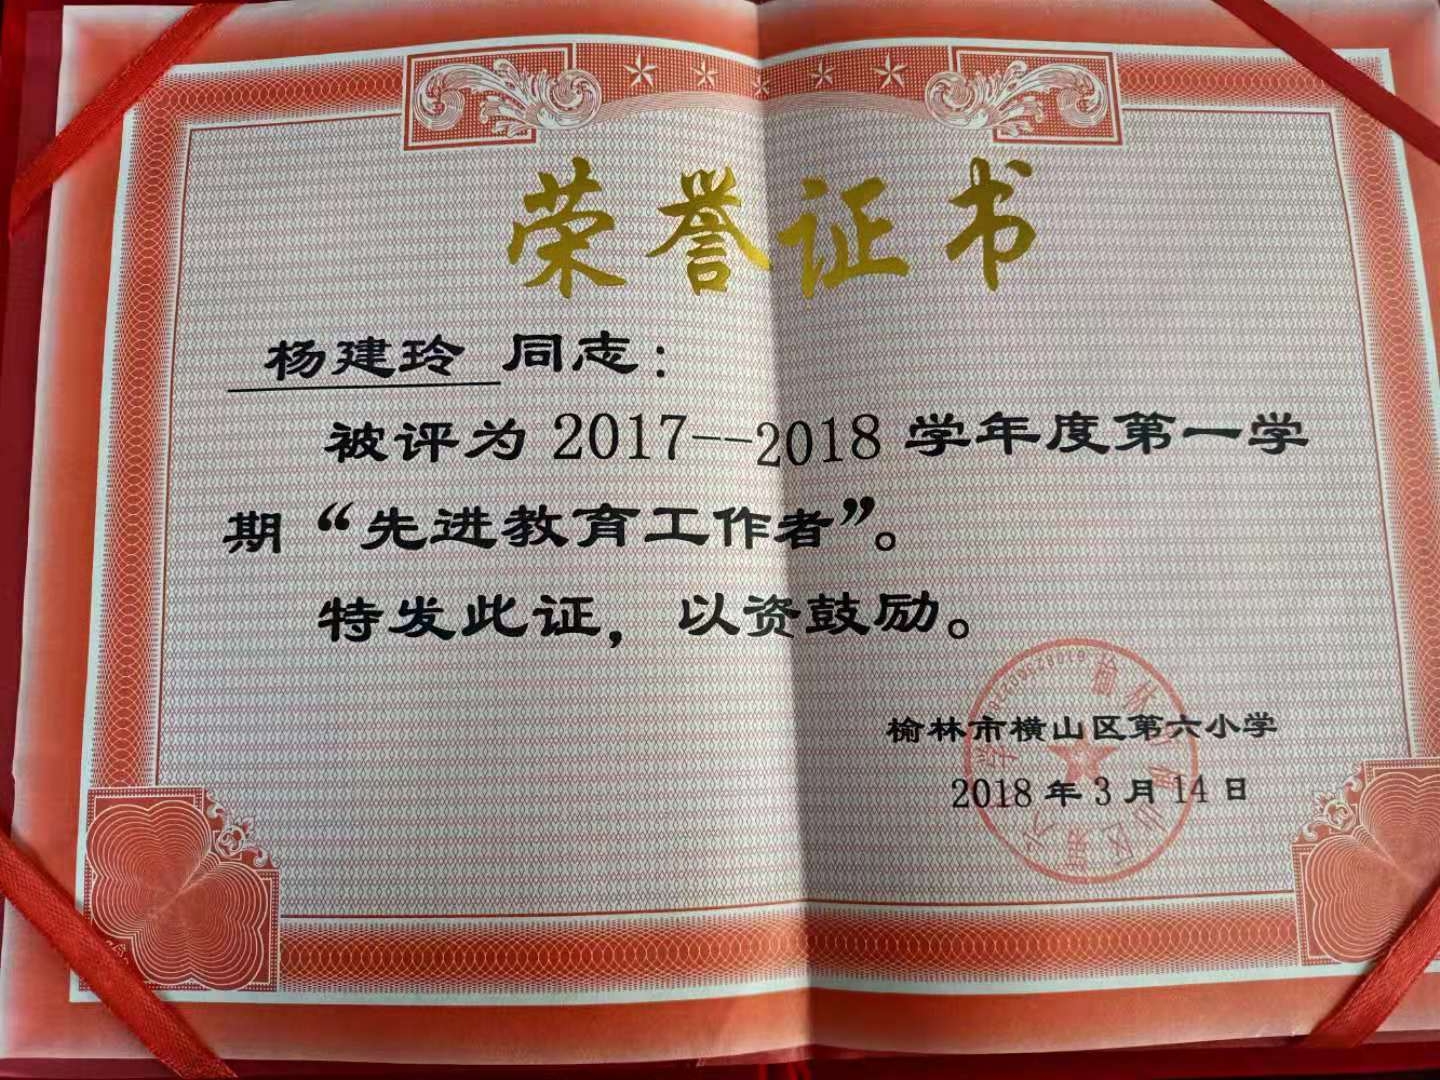 荣誉证书
杨建玲 同志：
被评为 2017--2018 学年度第一学
期“先进教育工作者”。
特发此证，以资鼓励。
榆林市横山区第六小学
2018 年 3 月 14 日